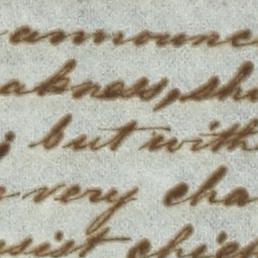 announce
akness, sh
; but with
very cha
sist chief